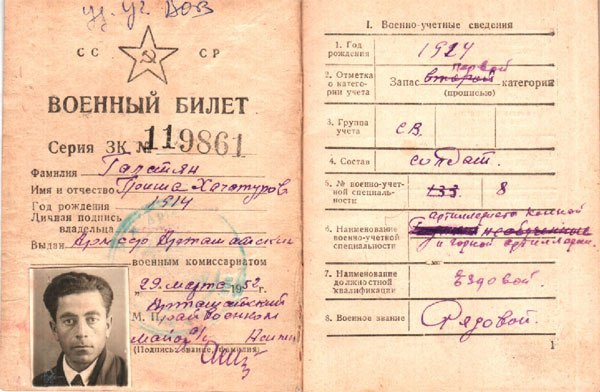 уд. уч. ВОВ
СС СР
ВОЕННЫЙ БИЛЕТ
Серия ЗК № 119861
Фамилия Галстян
Имя и отчество Гриша Хачатуров
Год рождения 1914
Личная подпись
владельца
Выдан Армсср Арташатским
военным комиссариатом
29 марта 1952 г.
Арташатский
М. П. Райвоенком
майор а/с
(Подпись, звание, фамилия)
I. Военно-учетные сведения
1. Год
рождения
1924
2. Отметка
о катего-
рии учета
первой
Запас второй категории
(прописью)
3. Группа
учета
СВ.
4. Состав
солдат.
5. № военно-учет-
ной специаль-
ности
133 8
6. Наименование
военно-учетной
специальности
артиллериста конной
необученные
и горной артиллерии.
7. Наименование
должностной
квалификации
Ездовой.
8. Военное звание
Рядовой.
1